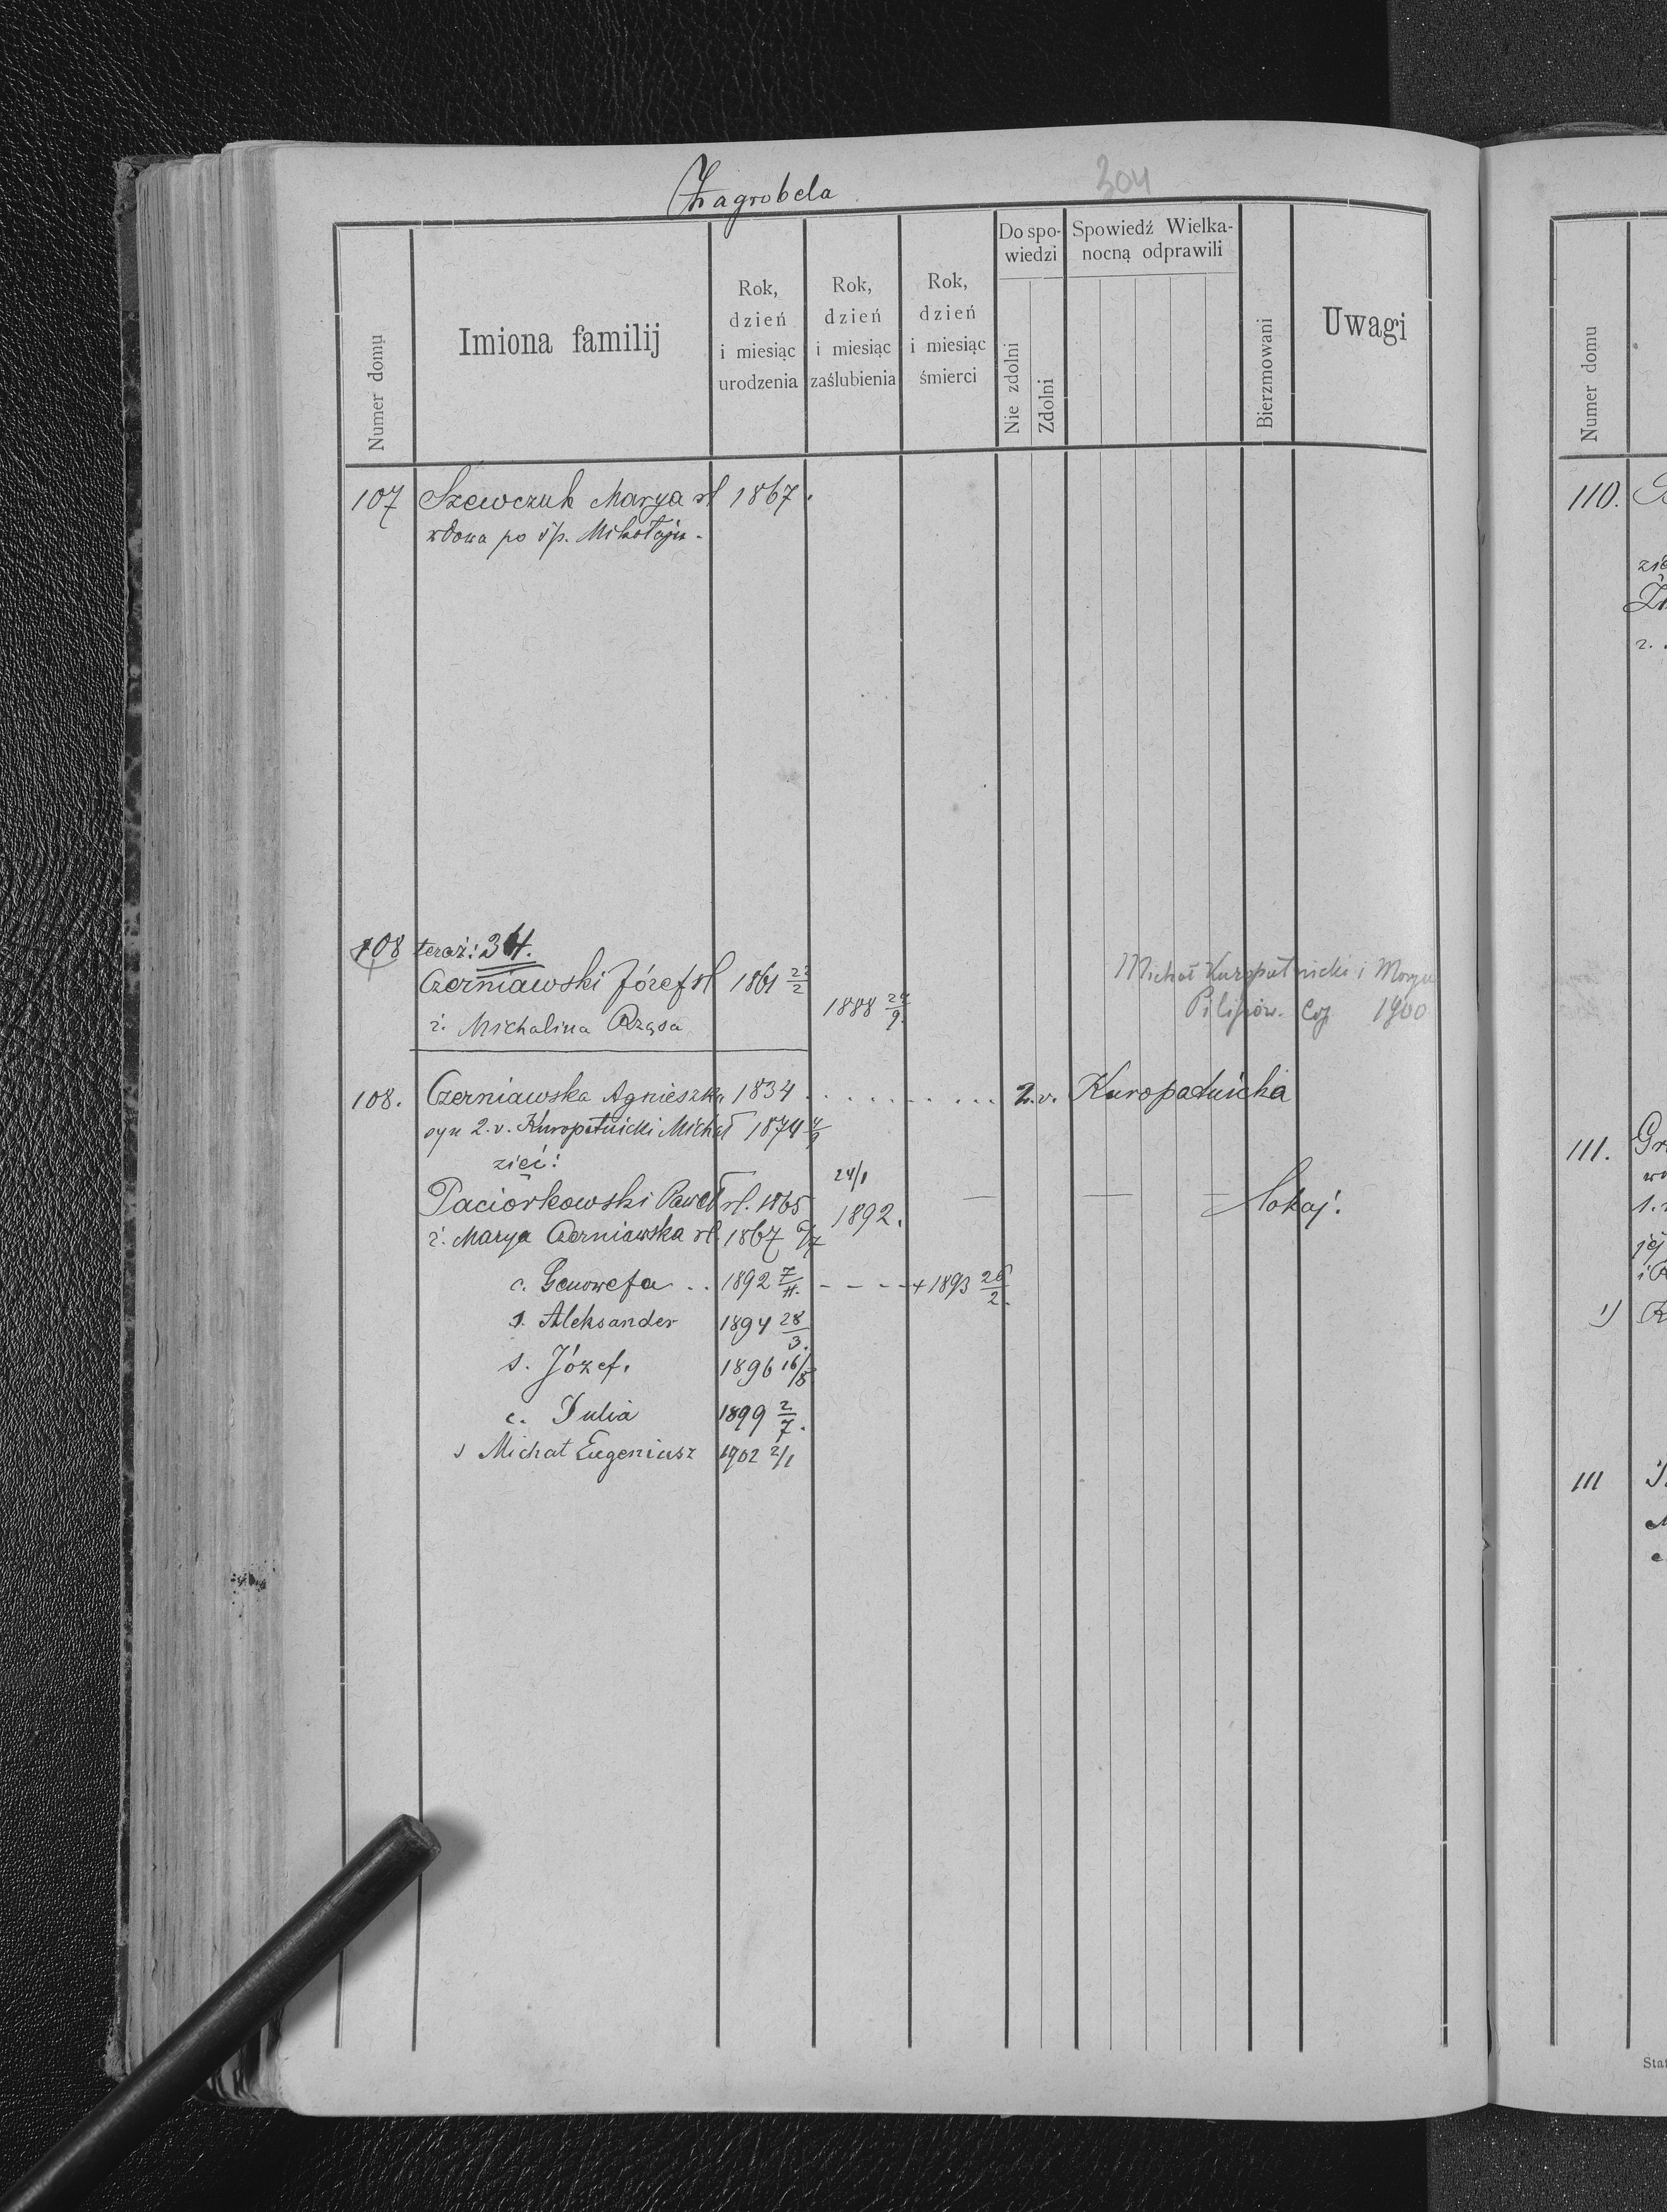 Zagrobela
304
Numer domu
Imiona familij
Rok, dzień i miesiąc urodzenia
Rok, dzień i miesiąc zaślubienia
Rok, dzień i miesiąc śmierci
Do spowiedzi
Nie zdolni
Zdolni
Spowiedź Wielkanocną odprawili
Bierzmowani
Uwagi
107 Szewczuk Marya rl 1867.
wdowa po śp. Mikołaju.
108 teraz: 34.
Czerniawski Józef rl 1861 22/2
ż. Michalina Rząsa 1888 24/9.
Michał Kuropatnicki i Marya
Pilipów. 1900
108. Czerniawska Agnieszka 1834 . . . . . . . . . . 2. v. Kuropatnicka
syn 2. v. Kuropatnicki Michał 1874
zięć:
Paciorkowski Paweł rl. 1865 24/1 1892. lokaj.
ż. Marya Czerniawska rl. 1867
c. Genowefa .. 1892 7/11. - - - + 1893 26/2.
s. Aleksander 1894 28/3.
s. Józef. 1896 16/8
c. Julia 1899 2/7.
s Michał Eugeniusz 1902 2/1
Numer domu
110.
111.
111